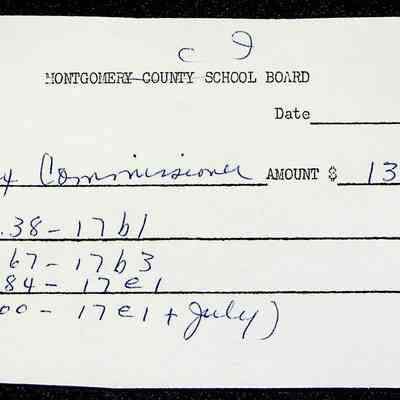 MONTGOMERY COUNTY SCHOOL BOARD
Date
Commissioner AMOUNT $ 13
.38 - 17b1
67 - 17b3
84 - 17e1
00 - 17e1 + July)